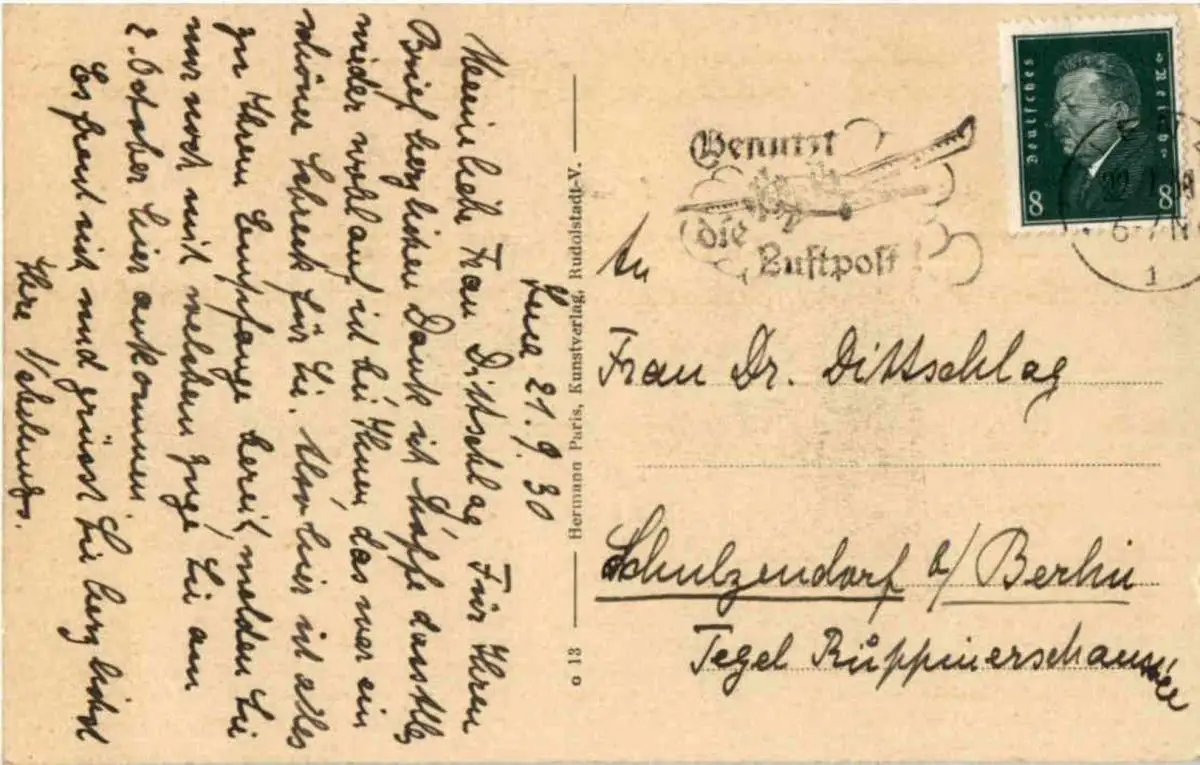 Jena 21.9.30
Meine liebe Frau Dittschlag. Für Ihren
Brief herzlichen Dank ich hoffe das Alles
wieder wohlauf ist bei Ihnen, das war ein
schöner Schreck für Sie. Von hier ist alles
zu Ihrem Empfange bereit, melden Sie
nur noch mit welchem Zuge Sie am
2. October hier ankommen.
Es freut sich und grüsst Sie herzlichst
Ihre
Hermann Paris, Kunstverlag, Rudolstadt-V.
o 13
Deutsches Reich
8 8
Benutzt
die
Luftpost!
22.
6-7 N
1
An
Frau Dr. Dittschlag
Schulzendorf b/ Berlin
Tegel Rüppinerschaussee